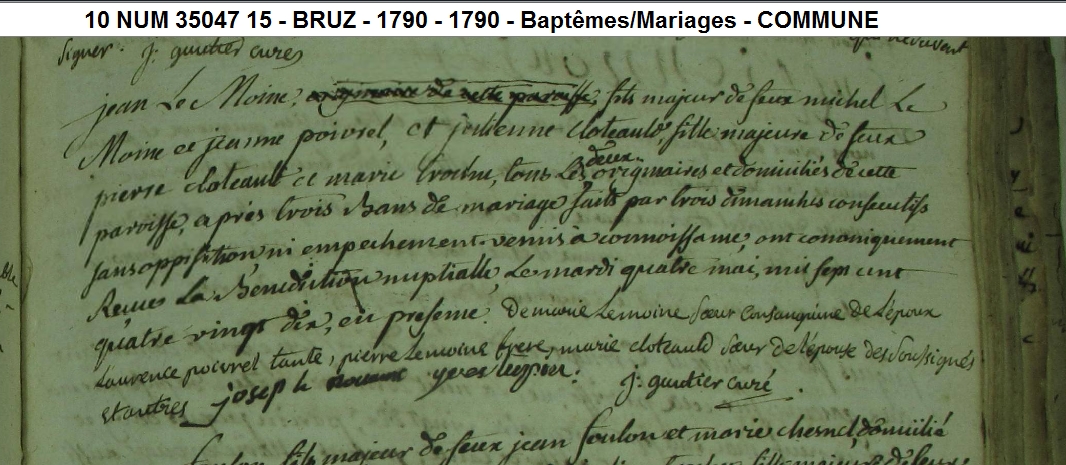 10 NUM 35047 15 - BRUZ - 1790 - 1790 - Baptêmes/Mariages - COMMUNE
signer. j. gautier curé
jean Le Moine, originaire de cette paroisse, fils majeur de feux michel Le
Moine et jeanne poivrel, et julienne cloteauld fille majeure de feux
pierre cloteault et marie trochu, tous Les deux originaires et domiciliés de cette
paroisse, après trois Bans de mariage faits par trois dimanches consecutifs
sans opposition, ni empechement venus à connoissance, ont canoniquement
Reçus La Benediction nuptialle, Le mardi quatre mai, mil sept cent
quatre vingt dix, en presence de marie Lemoine sœur consanguine de L'époux
Laurence poivrel tante, pierre Lemoine frere, marie cloteauld sœur de L'épouse des soussignés
et autres joseph le yves j. gautier curé
fils majeur de feux jean foulon et marie chesnel, domicilié